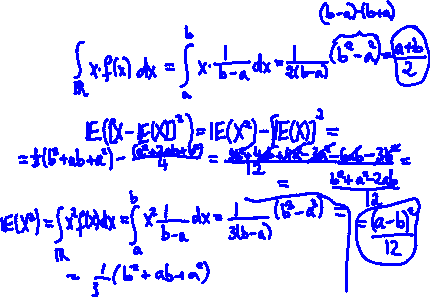 (b-a)·(b+a)
∫_ℝ x·f(x) dx = ∫_a^b x·1/(b-a) dx = 1/(2(b-a)) (b²-a²) = (a+b)/2
𝔼([X-𝔼(X)]²) = 𝔼(X²)-[𝔼(X)]² =
= 1/3(b²+ab+a²) - (a²+2ab+b²)/4 = (4b²+4ab+4a²-3a²-6ab-3b²)/12 =
= (b²+a²-2ab)/12
𝔼(X²) = ∫_ℝ x²f(x)dx = ∫_a^b x² 1/(b-a) dx = 1/(3(b-a)) (b³-a³) = = (a-b)²/12
= 1/3 (b²+ab+a²)